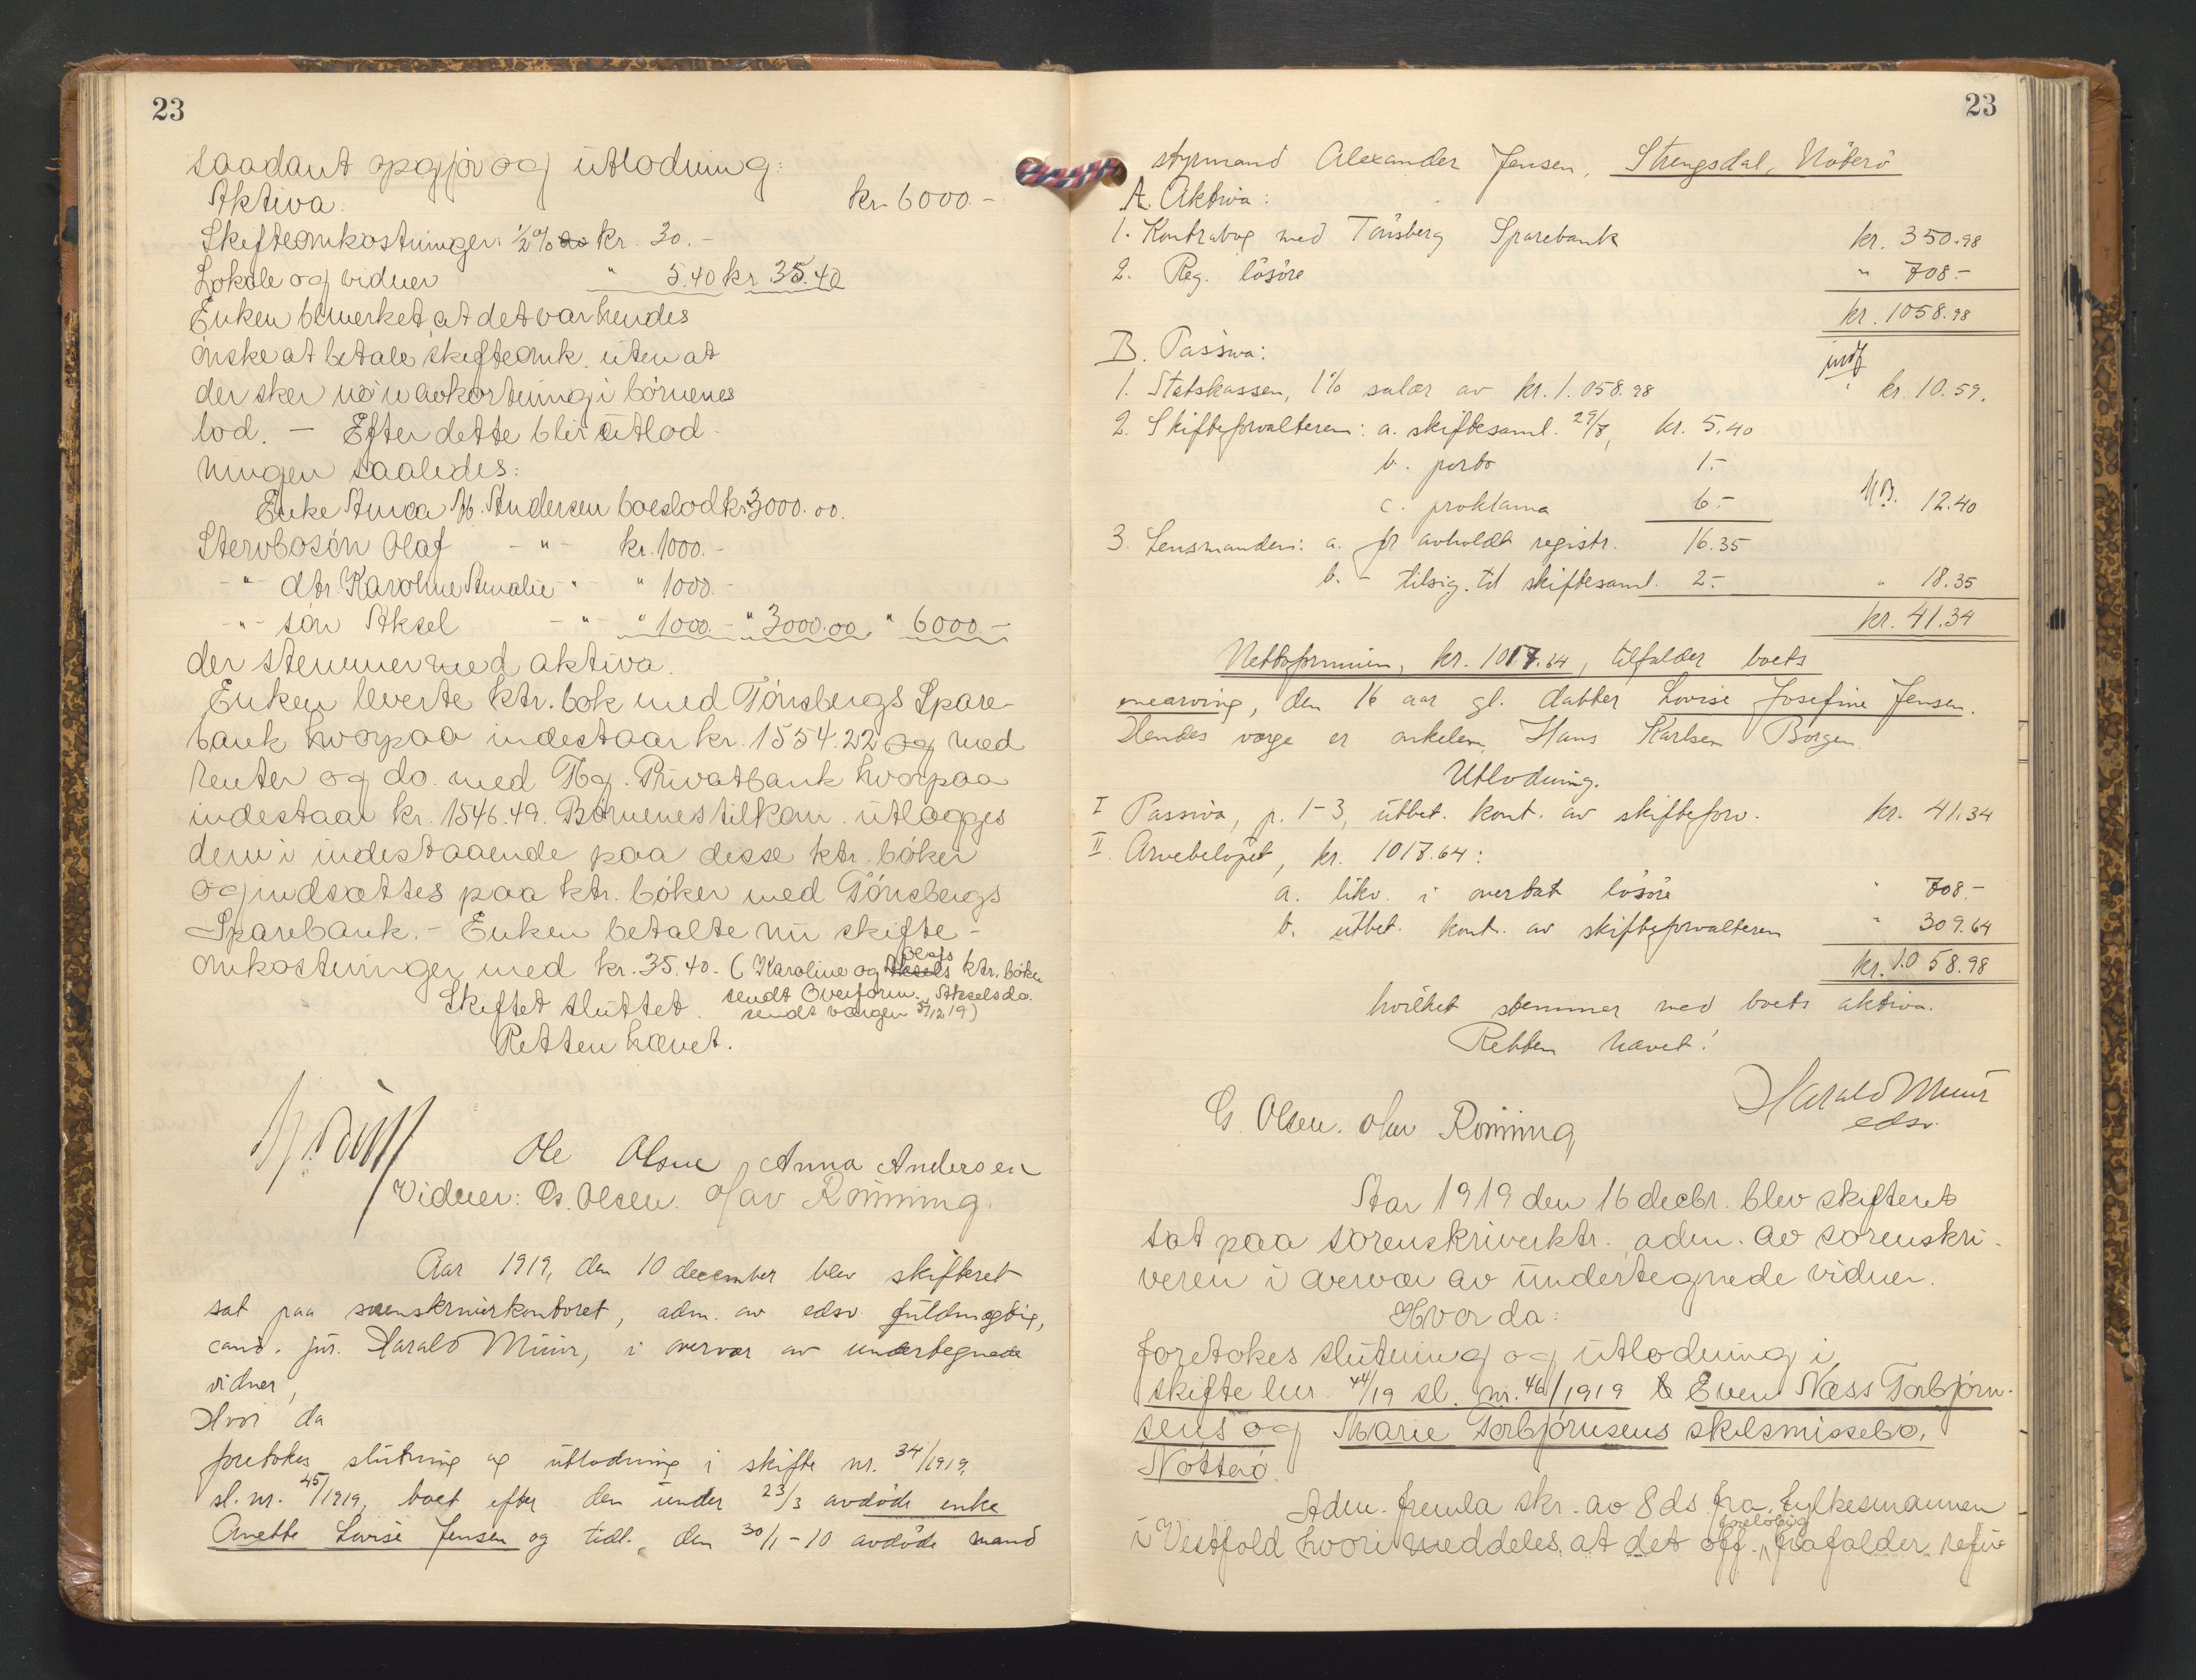 23
saadant opgjør og utlodning:
Aktiva. kr. 6000.-
Skifteomkostninger: ½% av kr. 30.-
Lokale og vidner " 5.40 kr. 35.40
Enken bemerket, at det var hendes
ønske at betale skifteomk. uten at
der sker noen avkortning i børnenes
lod. - Efter dette blir utlod-
ningen saaledes:
Enke Anna M. Andersen boeslod kr. 3000.00.
Stervbosøn Olaf - " - kr. 1000.-
- " - dtr. Karoline Amalie - " - " 1000.-
- " - søn Aksel - " - " 1000.- " 3000.00. " 6000.-
der stemmer med aktiva.
Enken leverte ktr. bok med Tønsbergs Spare-
bank hvorpaa indestaar kr. 1554.22 og med
renter og do. med Tbg. Privatbank hvorpaa
indestaar kr. 1546.49. Børnenes tilkom. utlægges
dem i indestaaende paa disse ktr. bøker
og indsættes paa ktr. bøker med Tønsbergs
Sparebank. - Enken betalte nu skifte-
omkostninger med kr. 35.40. (Karoline og Aksels Olafs ktr. bøker
Skiftet sluttet. sendt Overform. Aksels do.
sendt værgen 5/12 19)
Retten hævet.
Ole Olsen Anna Andersen
Vidner: G. Olsen. Olav Rønning.
Aar 1919, den 10 december blev skifteret
sat paa sorenskriverkontoret, adm. av edsv. fuldmægtig,
cand. jur. Harald Muur, i overvær av undertegnede
vidner,
Hvor da
foretokes slutning og utlodning i skifte nr. 34/1919,
sl. nr. 45/1919, boet efter den under 23/3 avdøde enke
Anette Lovise Jensen og tidl. den 30/1-10 avdøde mand
23
styrmand Alexander Jensen, Strengsdal, Nøterø
A. Aktiva:
1. Kontrabog med Tønsberg Sparebank kr. 350.98
2. Reg. løsøre " 708.-
kr. 1058.98
B. Passiva:
1. Statskassen, 1% salær av kr. 1.058.98 indf kr. 10.59.
2. Skifteforvalteren: a. skiftesaml. 29/8, kr. 5.40
b. porto 1.-
c. proklama 6.- NB. 12.40
3. Lensmanden: a. for avholdt registr. 16.35
b. - tilsig. til skiftesaml. 2.- " 18.35
kr. 41.34
Nettoformuen, kr. 1017.64, tilfalder boets
enearving, den 16 aar gl. datter Lovise Josefine Jensen.
Hendes værge er onkelen Hans Karlsen Borgen.
Utlodning.
I Passiva, p. 1-3, utbet. kont. av skifteforv. kr. 41.34
II. Arvebeløpet, kr. 1017.64:
a. likv. i overtat løsøre " 708.-
b. utbet. kont. av skifteforvalteren " 309.64
kr. 1.058.98
hvilket stemmer med boets aktiva.
Retten hævet!
Harald Muur
edsv.
G. Olsen. Olav Rønning
Aar 1919 den 16 decbr. blev skifteret
sat paa sorenskriverktr. adm. av sorenskri-
veren i overvær av undertegnede vidner.
Hvor da:
foretokes slutning og utlodning i
skifte lnr. 44/19 sl. nr. 46/1919 Even Næss Torbjørn-
sens og Marie Torbjørnsens skilsmissebo,
Nøtterø.
Adm. fremla skr. av 8 ds. fra fylkesmannen
i Vestfold hvori meddeles, at det off. foreløbig frafalder refu-